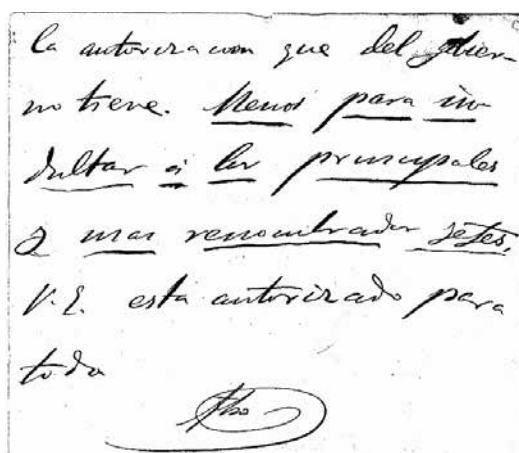 la autorizacion que del gbier-
no tiene. Menos para in-
dultar a los principales
y mas renombrados jefes,
V.E. está autorizado para
todo